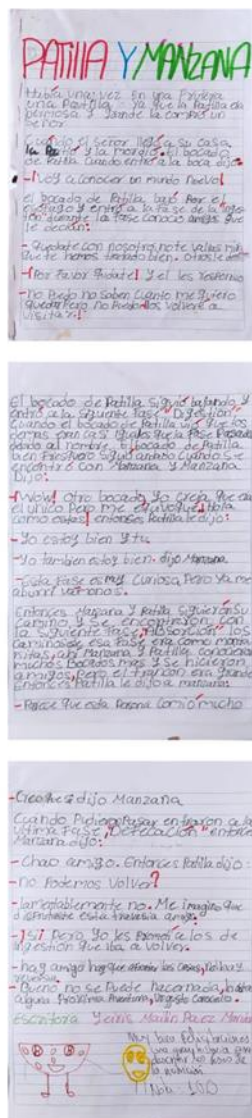 PATILLA Y MANZANA
Había una vez En una Frutería
una Patilla. Ya que la Patilla era
hermosa y grande la compró un
señor.
cuando el señor llegó a su casa,
la Partió y la mordió. El bocado
de Patilla cuando entró a la boca dijo:
-¡Voy a conocer un mundo nuevo!
el bocado de Patilla bajó Por el
esófago y entró a la fase de la inges-
tión durante la fase conoció amigos que
le decían:
- Quedate con nosotros, no te vallas mira
que te hemos tratado bien. Otros le de
-¡Por Favor Quédate! Y el les respondió
-no Puedo no saben cuánto me quiero
quedar Pero no Puedo los volveré a
visitar!
El bocado de Patilla siguió bajando y
entró a la siguiente Fase "Digestión"
cuando el bocado de Patilla vió que los
demas eran casi iguales que la Fase Pasada
al nombre, el bocado de Patilla
siguió andando cuando se
encontró con Manzana y Manzana
Dijo:
-¡Wow! Otro bocado, Yo creía que era
el unico Pero me equivoqué. ¡Hola
como estas! entonses Patilla le dijo:
-Yo estoy bien y tu.
-Yo tambien estoy bien. dijo Manzana
-Esta Fase es muy curiosa, Pero Ya me
aburrí vámonos.
Entonces Manzana y Patilla siguieron su
camino y se encontraron con
la siguiente Fase, "Absorción" los
caminos de esa Fase era como monta
ñitas, ahí Manzana y Patilla conocieron
muchos Bocados mas y se hicieron
amigos, pero el trancón era grande
Entonces Patilla le dijo a manzana:
- Parece que esta Persona comió mucho
-Creo que si dijo Manzana
Cuando Pudieron Pasar entraron a la
última Fase, "Defecación" entonces
Manzana dijo:
- Chao amigo. Entonces Patilla dijo:
-no Podemos Volver?
-lamentablemente no. Me imagino que
disfrutaste esta travesía amigo.
-¡si Pero Yo les Prometí a los de
ingestión que iba a volver.
-hay amigo hay que las cosas, no hay
-Bueno no se Puede hacer nada, hasta
alguna Proxima Aventura, Un gusto Conocerlo.
Escritora Yeiris Mailin Paez
Muy bien Felicitaciones
una gran historia para
la nutrición
Nota: 100